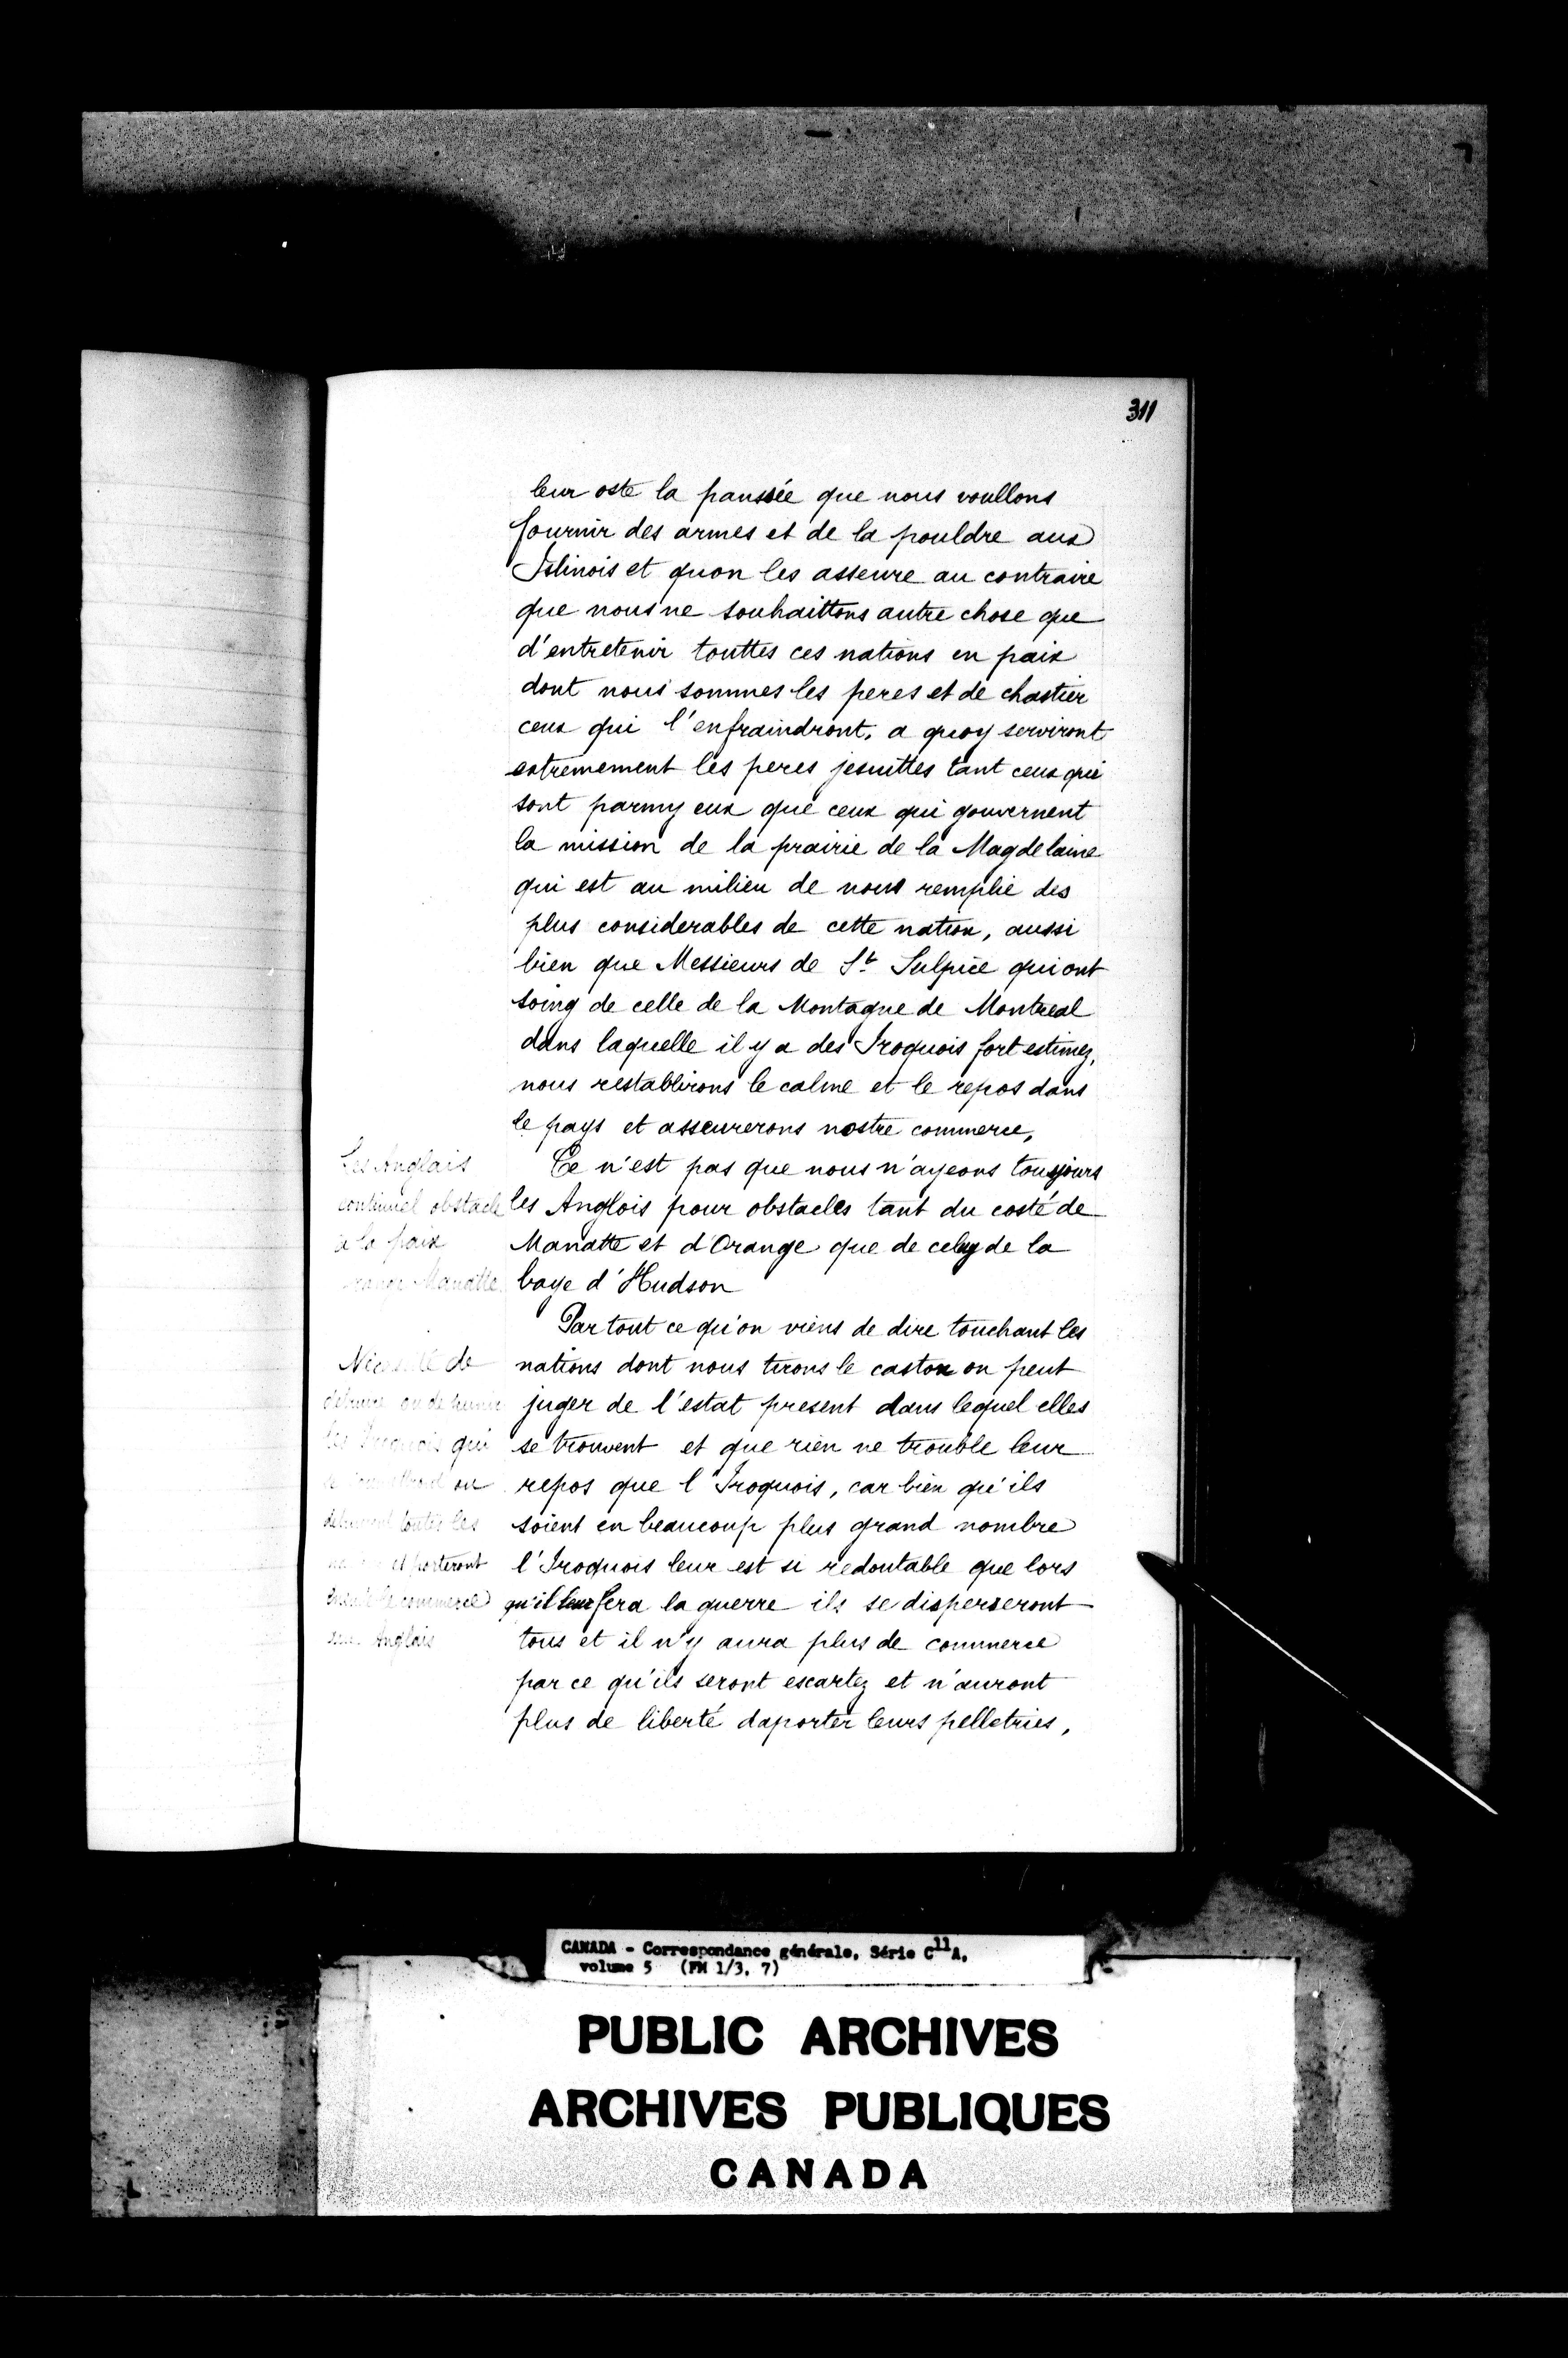 311
leur oste la panssée que nous voullons
fournir des armes et de la pouldre aux
Islinois et quon les asseure au contraire
que nous ne souhaittons autre chose que
d'entretenir touttes ces nations en paix
dont nous sommes les peres et de chastier
ceux qui l'enfraindront, a quoy serviront
extremement les peres jesuittes tant ceux qui
sont parmy eux que ceux qui gouvernent
la mission de la prairie de la Magdelaine
qui est au milieu de nous remplie des
plus considerables de cette nation, aussi
bien que Messieurs de St Sulpice qui ont
soing de celle de la Montagne de Montreal
dans laquelle il y a des Iroquois fort estimez,
nous restablirons le calme et le repos dans
le pays et asseurerons nostre commerce,
Les Anglais
continuel obstacle
a la paix
Manatte
Ce n'est pas que nous n'ayeons tousjours
les Anglois pour obstacles tant du costé de
Manatte et d'Orange que de celuy de la
baye d'Hudson
Par tout ce qu'on viens de dire touchant les
nations dont nous tirons le castor on peut
juger de l'estat present dans lequel elles
se trouvent et que rien ne trouble leur
repos que l'Iroquois, car bien qu'ils
soient en beaucoup plus grand nombre
l'Iroquois leur est si redoutable que lors
qu'il leur fera la guerre ils se disperseront
tous et il n'y aura plus de commerce
par ce qu'ils seront escartez et n'auront
plus de liberté daporter leurs pelletries,
de
ou de
les Iroquois qui
ou
toutes les
et porteront
le commerce
Anglais
CANADA - Correspondance générale, Série C11A,
volume 5 (FM 1/3, 7)
PUBLIC ARCHIVES
ARCHIVES PUBLIQUES
CANADA